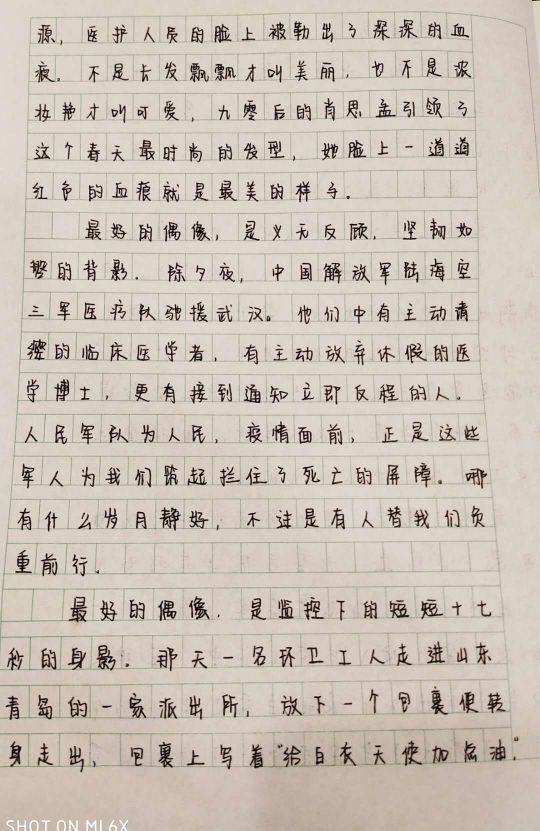 源，医护人员的脸上被勒出了深深的血
痕。不是长发飘飘才叫美丽，也不是浓
妆艳才叫可爱，九零后的肖思孟引领了
这个春天最时尚的发型，她脸上一道道
红色的血痕就是最美的样子。
最好的偶像，是义无反顾，坚韧如
磐的背影。除夕夜，中国解放军陆海空
三军医疗队驰援武汉。他们中有主动请
缨的临床医学者，有主动放弃休假的医
学博士，更有接到通知立即反程的人。
人民军队为人民，疫情面前，正是这些
军人为我们筑起拦住了死亡的屏障。哪
有什么岁月静好，不过是有人替我们负
重前行。
最好的偶像，是监控下的短短十七
秒的身影。那天一名环卫工人走进山东
青岛的一家派出所，放下一个包裹便转
身走出，包裹上写着“给白衣天使加点油”
SHOT ON MI 6X